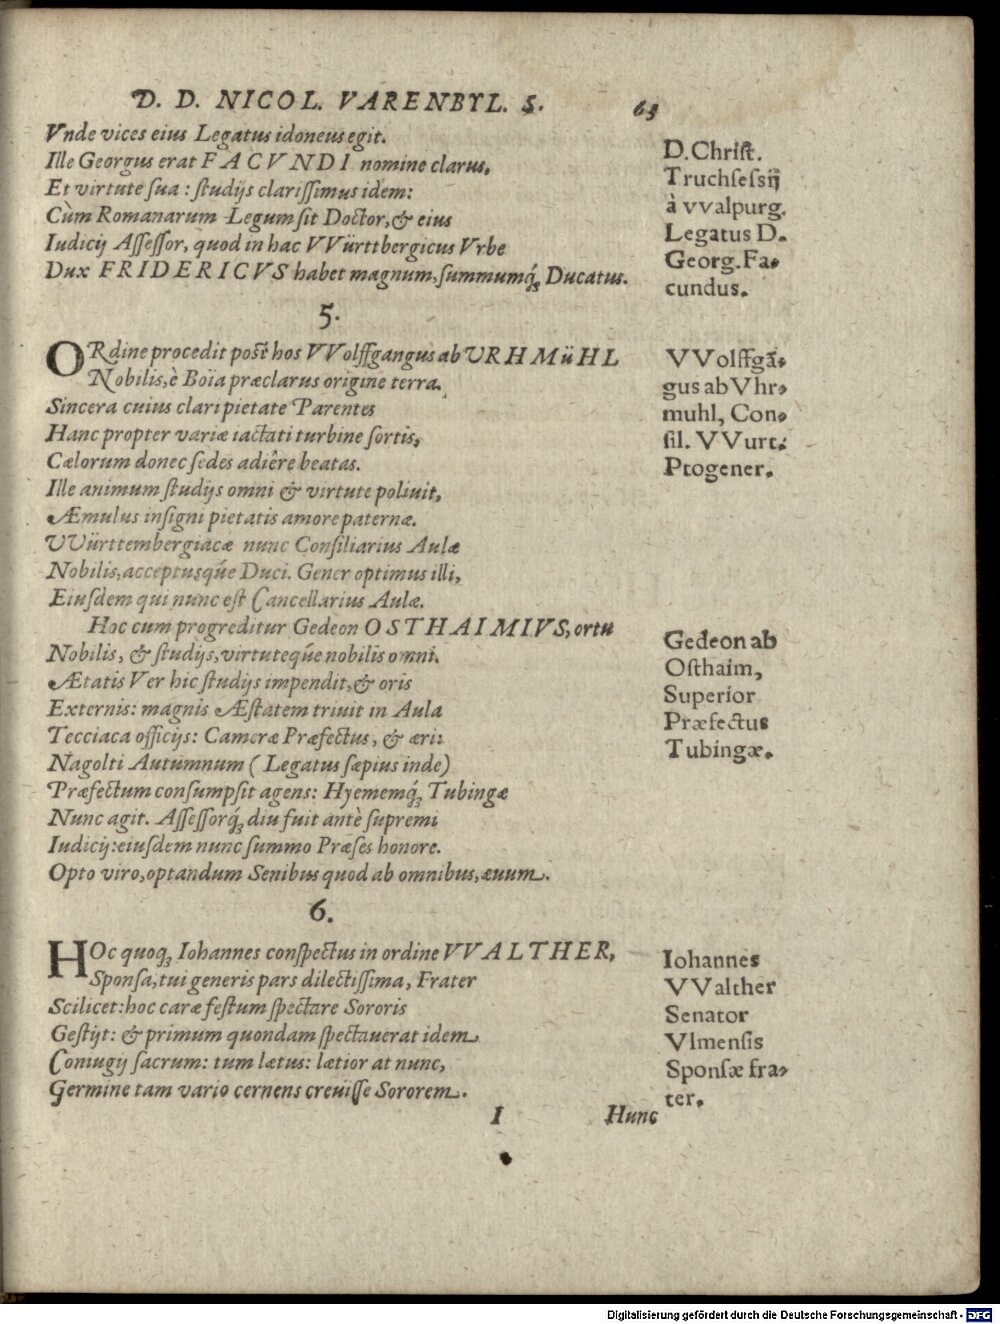 D. D. NICOL. VARENBYL. S. 63
Vnde vices eius Legatus idoneus egit.
Ille Georgus erat FACVNDI nomine clarus,
Et virtute sua : studijs clarissimus idem:
Cùm Romanarum Legum sit Doctor, & eius
Iudicij Assessor, quod in hac VVürttbergicus Vrbe
Dux FRIDERICVS habet magnum, summumq́; Ducatus.
D. Christ.
Truchsessij
à vvalpurg.
Legatus D.
Georg. Fa-
cundus.
5.
ORdine procedit post hos VVolffgangus ab URHMüHL
Nobilis, è Boia præclarus origine terra.
Sincera cuius clari pietate Parentes
Hanc propter variæ iactati turbine sortis,
Cælorum donec sedes adiêre beatas.
Ille animum studijs omni & virtute poliuit,
Æmulus insigni pietatis amore paternæ.
VVürttembergiacæ nunc Consiliarius Aulæ
Nobilis, acceptusqúe Duci. Gener optimus illi,
Eiusdem qui nunc est Cancellarius Aulæ.
VVolffgã-
gus ab Vhr-
muhl, Con-
sil. VVurt.
Ptogener.
Hoc cum progreditur Gedeon OSTHAIMIVS, ortu
Nobilis, & studijs, virtuteqúe nobilis omni.
Ætatis Ver hic studijs impendit, & oris
Externis: magnis Æstatem triuit in Aula
Tecciaca officijs: Cameræ Præfectus, & æri:
Nagolti Autumnum ( Legatus sæpius inde)
Præfectum consumpsit agens: Hyememq́; Tubingæ
Nunc agit. Assessorq́; diu fuit antè supremi
Iudicij: eiusdem nunc summo Præses honore.
Opto viro, optandum Senibus quod ab omnibus, æuum.
Gedeon ab
Osthaim,
Superior
Præfectus
Tubingæ.
6.
HOc quoq; Iohannes conspectus in ordine VVALTHER,
Sponsa, tui generis pars dilectissima, Frater
Scilicet: hoc caræ festum spectare Sororis
Gestijt: & primum quondam spectauerat idem
Coniugij sacrum: tum lætus: lætior at nunc,
Germine tam vario cernens creuisse Sororem.
Iohannes
VValther
Senator
Vlmensis
Sponsæ fra-
ter.
I Hunc
Digitalisierung gefördert durch die Deutsche Forschungsgemeinschaft - DFG